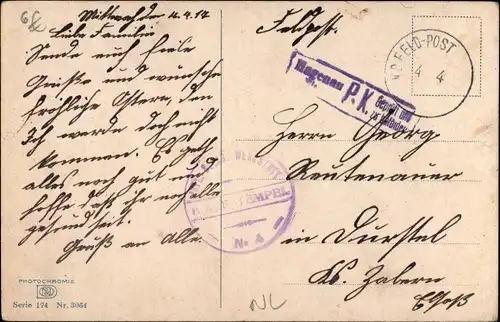 Mittwoch den 4.4.17
Liebe Familie
Sende euch Viele
Grüße und wünsche
fröhliche Ostern, den
Ich werde doch nicht
kommen. Es geht
alles noch gut und
hoffe daß ihr noch alle
gesund seit.
Gruß an Alle.
PHOTOCHROMIE
Serie 174 Nr. 3064
Feldpost.
FELD-POST
4 4
Hagenau
P.K.
Geprüft und
zu befördern
STEMPEL
N. 4
Herrn Georg
Reutenauer
in Durstel
Ks. Zabern
Elsaß
NL